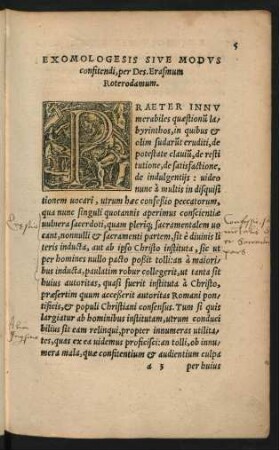 5
EXOMOLOGESIS SIVE MODVS
confitendi, per Des. Erasmum
Roterodamum.
PRAETER INNV
merabiles quæstionũ la
byrinthos, in quibus &
olim sudarũt eruditi, de
potestate clauiũ, de resti
tutione, de satisfactione,
de indulgentijs: uideo
nunc à multis in disquisi
tionem uocari, utrum hæc confeßio peccatorum,
qua nunc singuli quotannis aperimus conscientiæ
uulnera sacerdoti, quam pleriq; Sacramentalem uo
cant, nonnulli & sacramenti partem, sit è diuinis li
teris inducta, aut ab ipso Christo instituta, sic ut
per homines nullo pacto poßit tolli: an à maiori
bus inducta, paulatim robur collegerit, ut tanta sit
huius autoritas, quasi fuerit instituta à Christo,
præsertim quum acceßerit autoritas Romani pon
tificis, & populi Christiani consensus. Tum si quis
largiatur ab hominibus institutam, utrum conduci
bilius sit eam relinqui, propter innumeras utilita
tes, quas ex ea uidemus proficisci: an tolli, ob innu
mera mala, quæ confitentium & audientium culpa
a 3 per huius